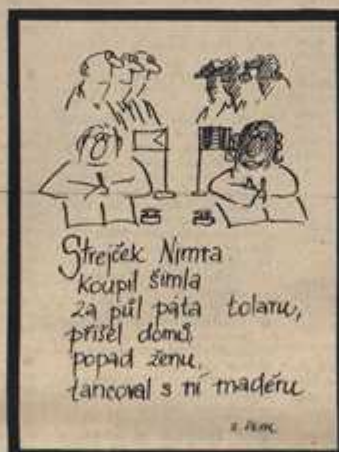 Strejček Nimra
koupil šimla
za půl páta tolaru,
přišel domů,
popad ženu,
tancoval s ní maděru